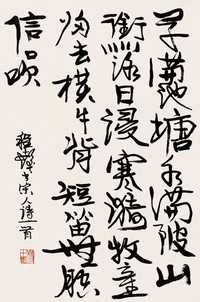 草滿池塘水滿陂山
銜落日浸寒漪牧童
歸去橫牛背短笛無腔
信口吹
書宋人詩一首